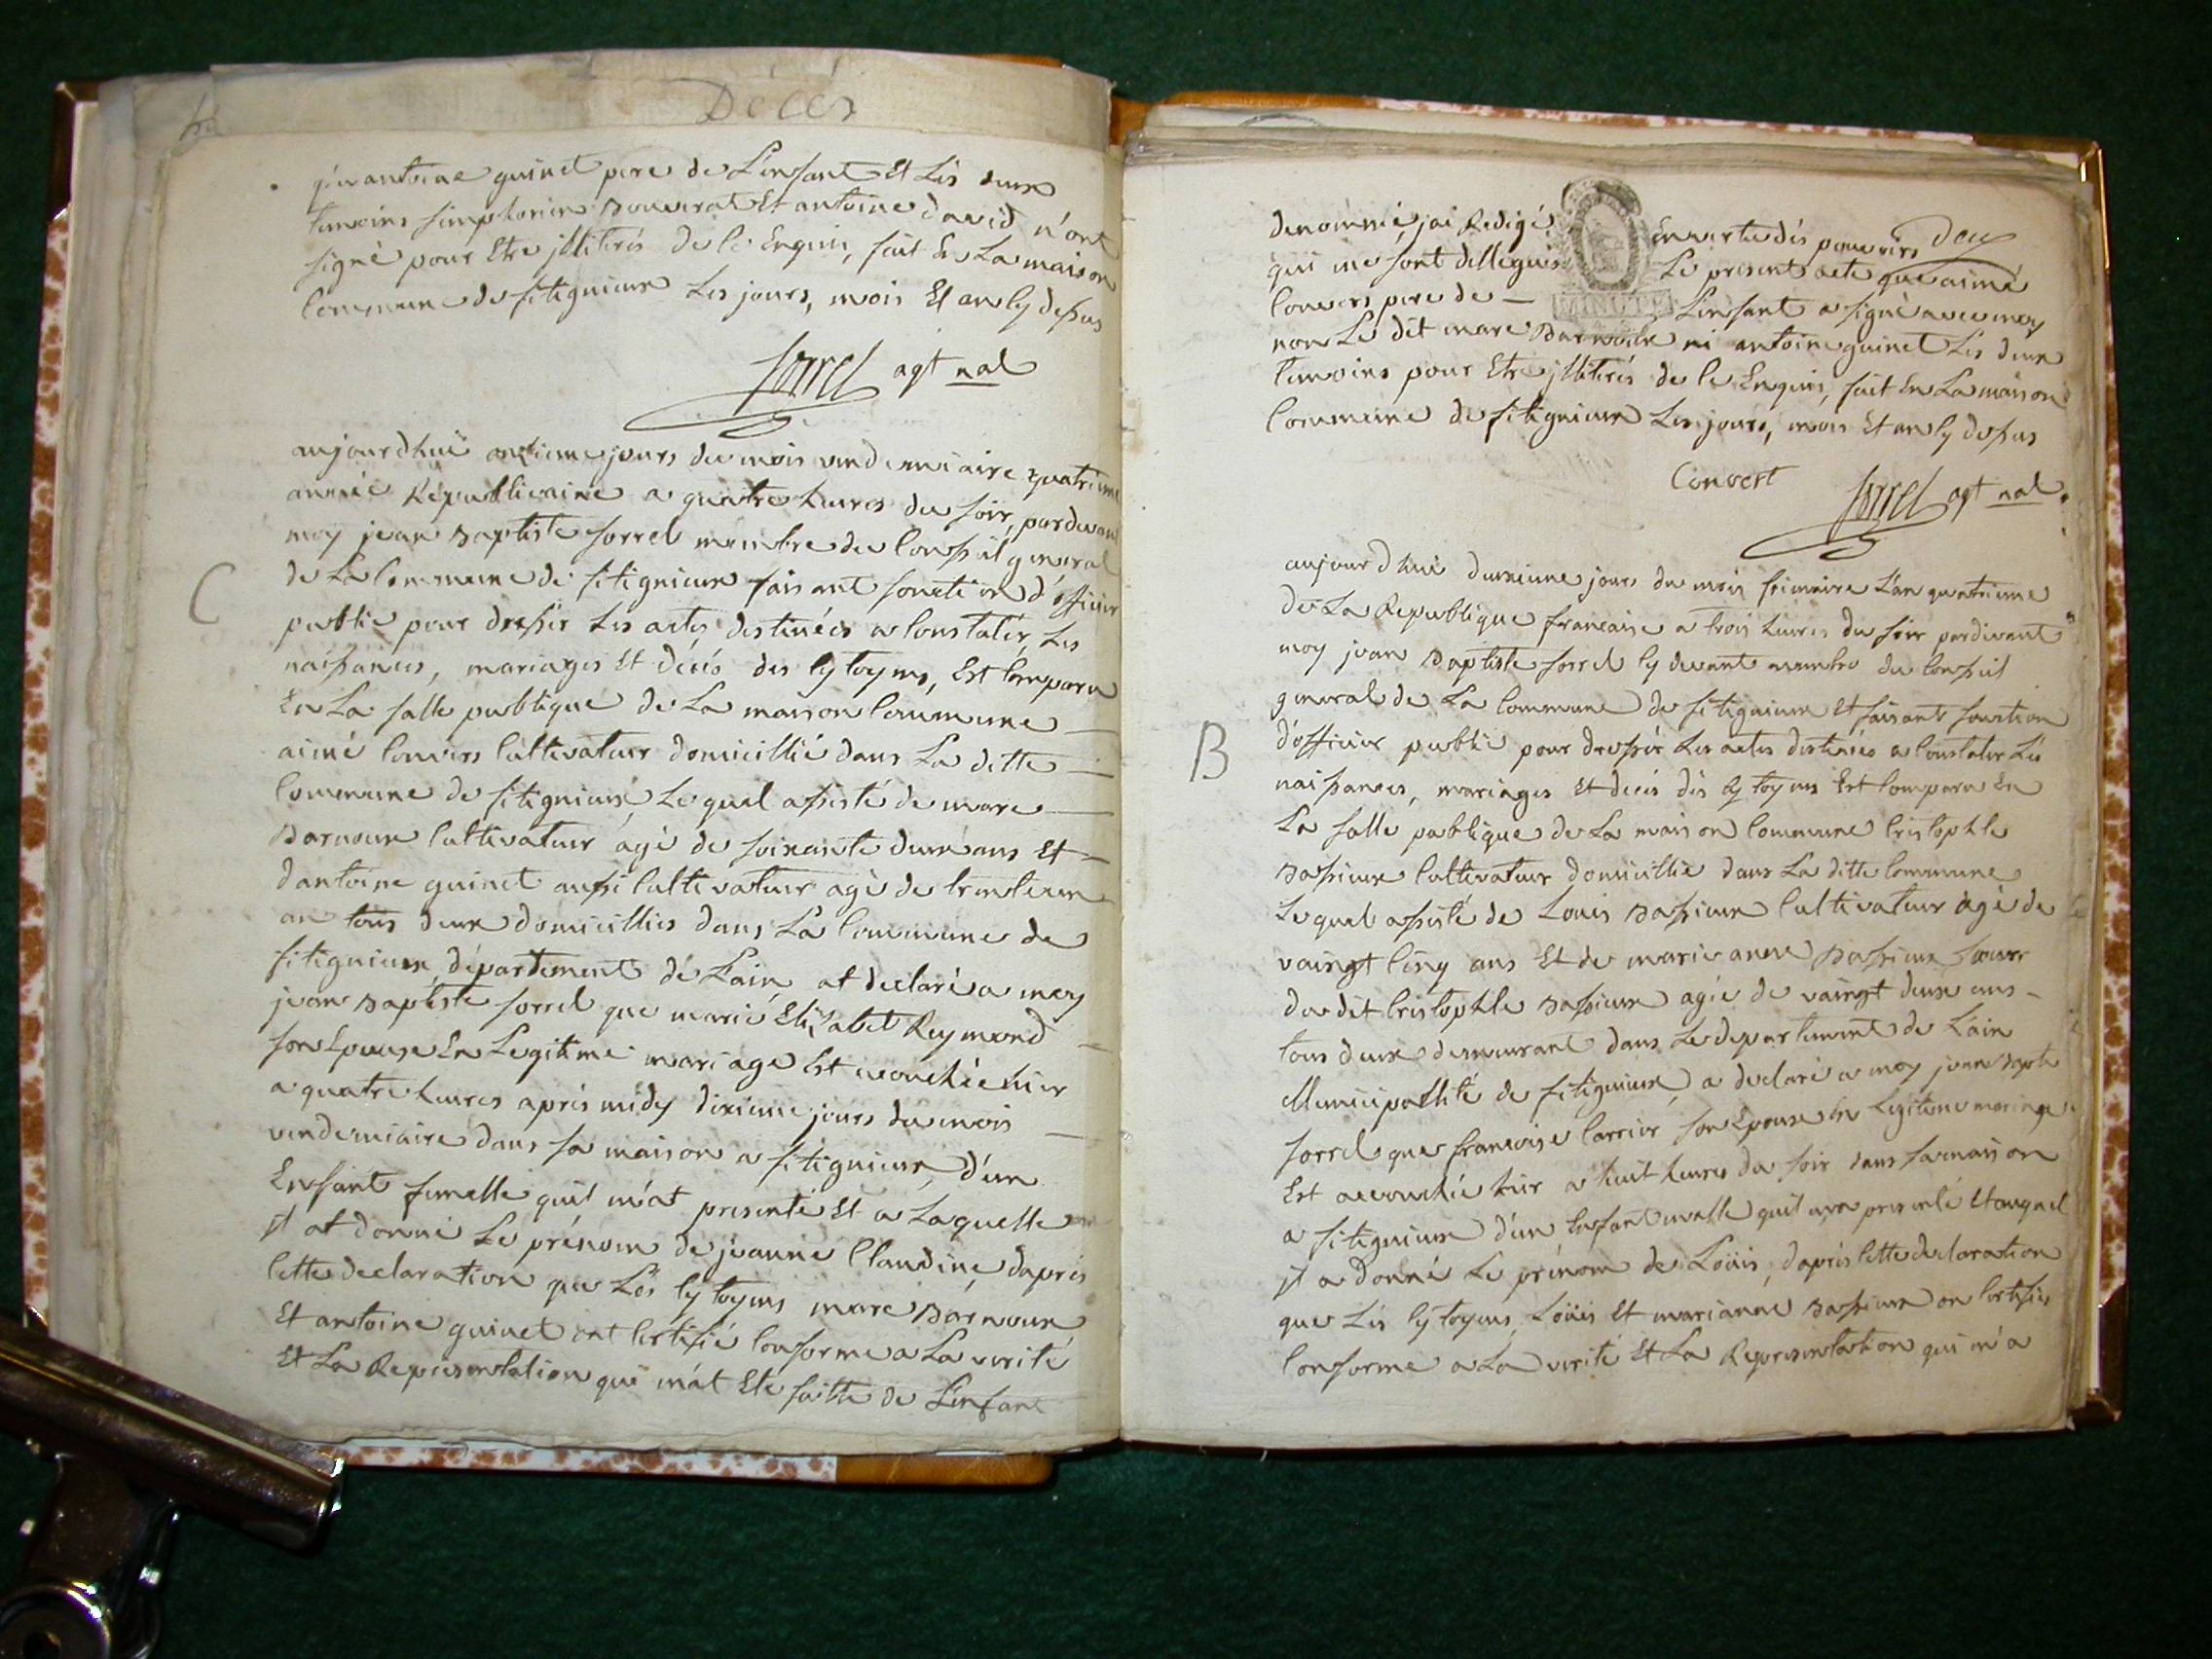 Décés
qu'antoine guinet pere de L'enfant Et Lés deux
temoins simphorien Bouverat Et antoine david n'ont
signé pour Etre jlliterés de le Enquis, fait En La maison
Commune de sitignieux Les jours, mois Et an Cy dessus
sorrel agt nal
aujourdhui onzieme jours du mois vendemiaire quatrieme
année Républicaine a quatre heures du soir, pardevant
moy jean Baptiste sorrel membre du Conseil general
C
de La Commune de sitignieux faisant fonction d'officier
public pour dresser Les actes destinées a Constatér, Les
naissances, mariages Et décés des Cytoyens, Est Comparu
En La salle publique de La maison Commune
aimé Convers Cultivateur domicillié dans La ditte
Commune de sitignieux, Le quel assisté de marc
Barnoux Cultivateur âgé de soixante deux ans Et
d'antoine guinet aussi Cultivateur agé de trente un
an tous deux domicilliés dans La Commune de
sitignieux département de L'ain at declaré a moy
jean Baptiste sorrel que marie Elizabet Reymond
son Epouse En Legitime mariage Est accouchée hier
a quatre heures aprés midy dixieme jours du mois
vendemiaire dans sa maison a sitignieux, d'un
Enfant femelle quil m'at presenté Et a Laquelle
jl at donné Le prénom de jeanne Claudine, daprés
Cette declaration que Lés Cytoyens marc Barnoux
Et antoine guinet ont Certifié Conforme a La verité
Et La Representation qui m'at Eté faitte de L'enfant
denommé, jai Redigé En vertu dés pouvoirs
qui me sont dellegués Le present acte que aimé
MINUTE
Convers pere de L'enfant a signé avec moy
non Le dit marc Barnoux ni antoine guinet Lés deux
temoins pour Etre jlliterés de le Enquis, fait En La maison
Commune de sitignieux Les jours, mois Et an Cy dessus
Convert
sorrel agt nal
aujourdhui deuxieme jours du mois frimaire L'an quatrieme
de La Republique francaise a trois heures du soir pardevant
moy jean Baptiste sorrel Cy devant membre du Conseil
general de La Commune de sitignieux Et faisant fonction
B
d'officier public pour dressér Les actes destinées a Constater Lés
naissances, mariages Et decés dés Cytoyens Est Comparu En
La salle publique de La maison Commune Cristophle
Bassieux Cultivateur domicillié dans La ditte Commune
Le quel assisté de Louis Bassieux Cultivateur âgé de
vaingt Cinq ans Et de marie anne Bassieux soeur
du dit Cristophle Bassieux agée de vaingt deux ans
tous deux demeurant dans Le departement de L'ain
Municipallité de sitignieux, a declaré a moy jean Bapte
sorrel que francoise Carrier son Epouse En Legitime mariage
Est accouchée hier a huit heures du soir dans sa maison
a sitignieux d'un Enfant malle quil m'a presenté Et auquel
jl a donné Le prénom de Loüis, daprés Cette declaration
que Lés Cytoyens, Loüis Et marianne Bassieux on Certifiés
Conforme a La verité Et La Representation qui m'a